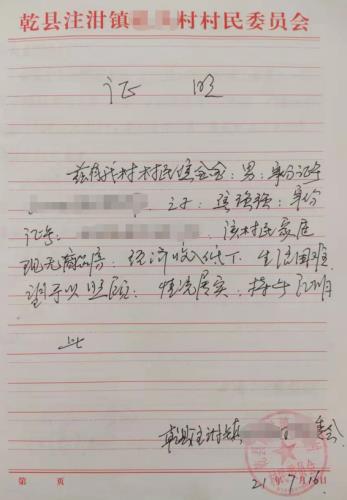 乾县注泔镇村村民委员会
证 明
兹有我村村民焦会会：男：身份证号
之子：焦强强：身份
证号： 该村民家庭
现无商品房：经济收入低下 生活困难
望予以照顾：情况属实 特此证明
此
乾县注泔镇 委会
第 页 21年7月16日